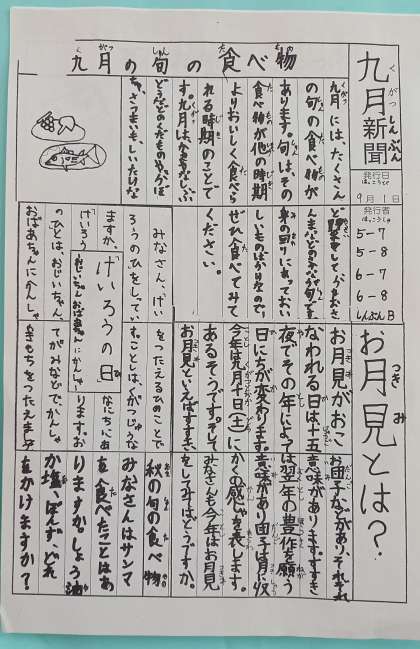 九月新聞
くがつしんぶん
発行日
はっこうび
9月1日
発行者
はっこうしゃ
5－7
5－8
6－7
6－8
しんぶんB
九月の旬の食べ物
九月には、たくさん
の旬の食べ物が
あります。旬は、その
食べ物が他の時期
よりおいしく食べら
れる時期のことで
す。九月は、
しいものばかりなので、
ぜひ食べてみて
ください。
お月見とは？
お月見がおこ
なわれる日は十五
夜でその年によって
日にちが変わります。
今年は九月十日(土)に
あるそうです。そして
お月見といえばすすき
お団子などがあり、それぞれ
意味があります。すすき
は翌年の豊作を願う
意味があり団子は月に収
かくの感しゃを表します。
みなさんも今年はお月見
をしてみてはどうですか。
「けいろうの日」
みなさん、けい
ろうのひをしてい
ますか。
「けいろう
おじいちゃん、
おばあちゃんにかんしゃ
をつたえるひのことで
す。
なにちにあ
ります。お
てがみなどで、かんしゃ
きもちをつたえます
秋の旬の食べ物
みなさんはサンマ
を食べたことはあ
りますか。しょう油
か塩、ぽんず、どれ
をかけますか？